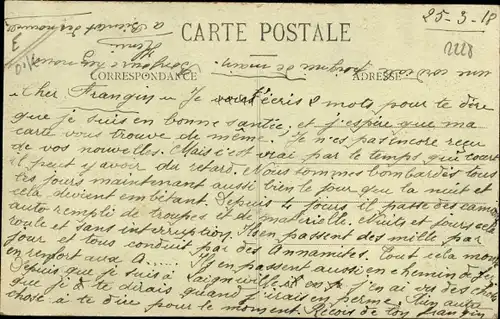 25-3-18
CARTE POSTALE
3
2228
CORRESPONDANCE
ADRESSE
Cher Frangin Je t'écris 2 mots pour te dire
que je suis en bonne santée, et j'espère que ma
carte vous trouve de même. Je n'es pas encore reçu
de vos nouvelles. Mais c'est vrai par le temps que court
il peut y avoir du retard. Nous sommes bombardés tous
les jours maintenant aussi bien le jour que la nuit et
cela devient embêtant. Depuis 4 jours il passe des camions
auto rempli de troupes et de materielle. Nuits et jours cela
roule et sans interruption. Il en passent des mille par
jour et tous conduit par des Annamites. Tout cela monte
en renfort aux A..... Il en passent aussi en chemin de fer
Depuis que je suis à j'en ai vu des choses
que je te dirais quand j'irais en perme. Rien autre
chose à te dire pour le moment. Reçois de ton frangin
une cordiale poignée de main
Henri